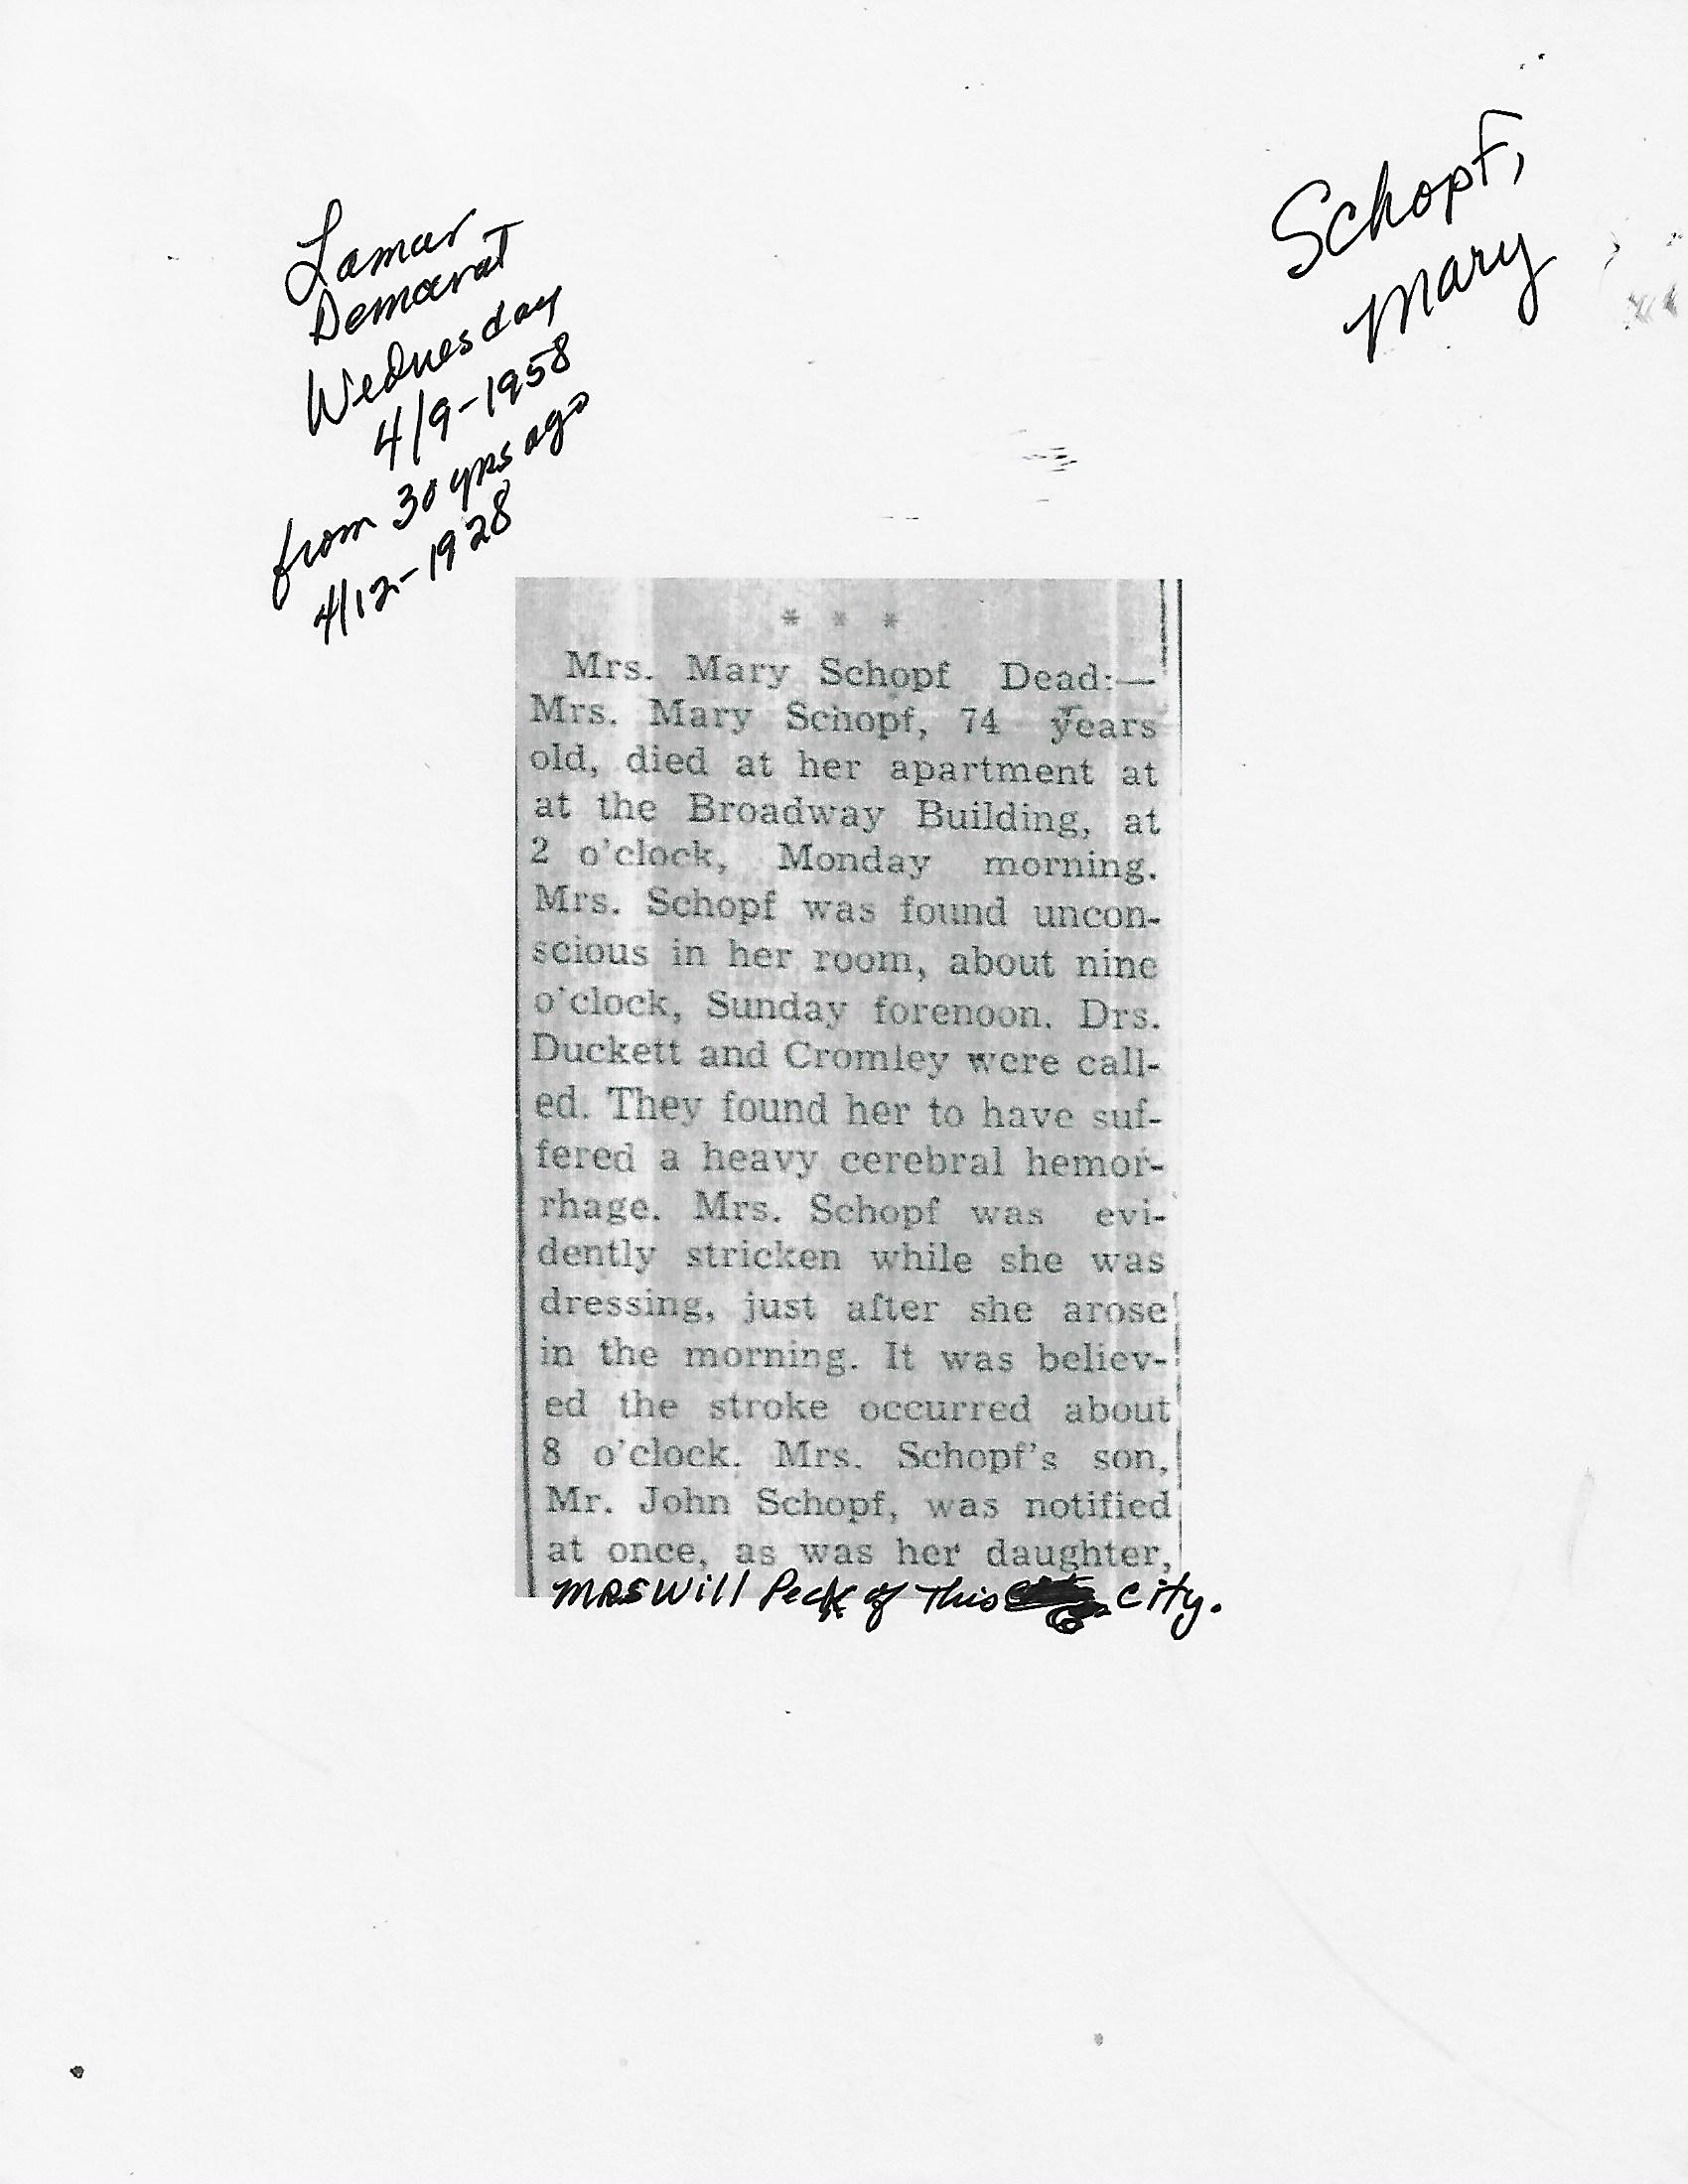 Schopf,
Mary
Lamar
Democrat
Wednesday
4/9-1958
from 30 yrs ago
4/12-1928
* * *
Mrs. Mary Schopf Dead:—
Mrs. Mary Schopf, 74 years
old, died at her apartment at
at the Broadway Building, at
2 o'clock, Monday morning.
Mrs. Schopf was found uncon-
scious in her room, about nine
o'clock, Sunday forenoon. Drs.
Duckett and Cromley were call-
ed. They found her to have suf-
fered a heavy cerebral hemor-
rhage. Mrs. Schopf was evi-
dently stricken while she was
dressing, just after she arose
in the morning. It was believ-
ed the stroke occurred about
8 o'clock. Mrs. Schopf's son,
Mr. John Schopf, was notified
at once, as was her daughter,
MRS Will Peck of This City.